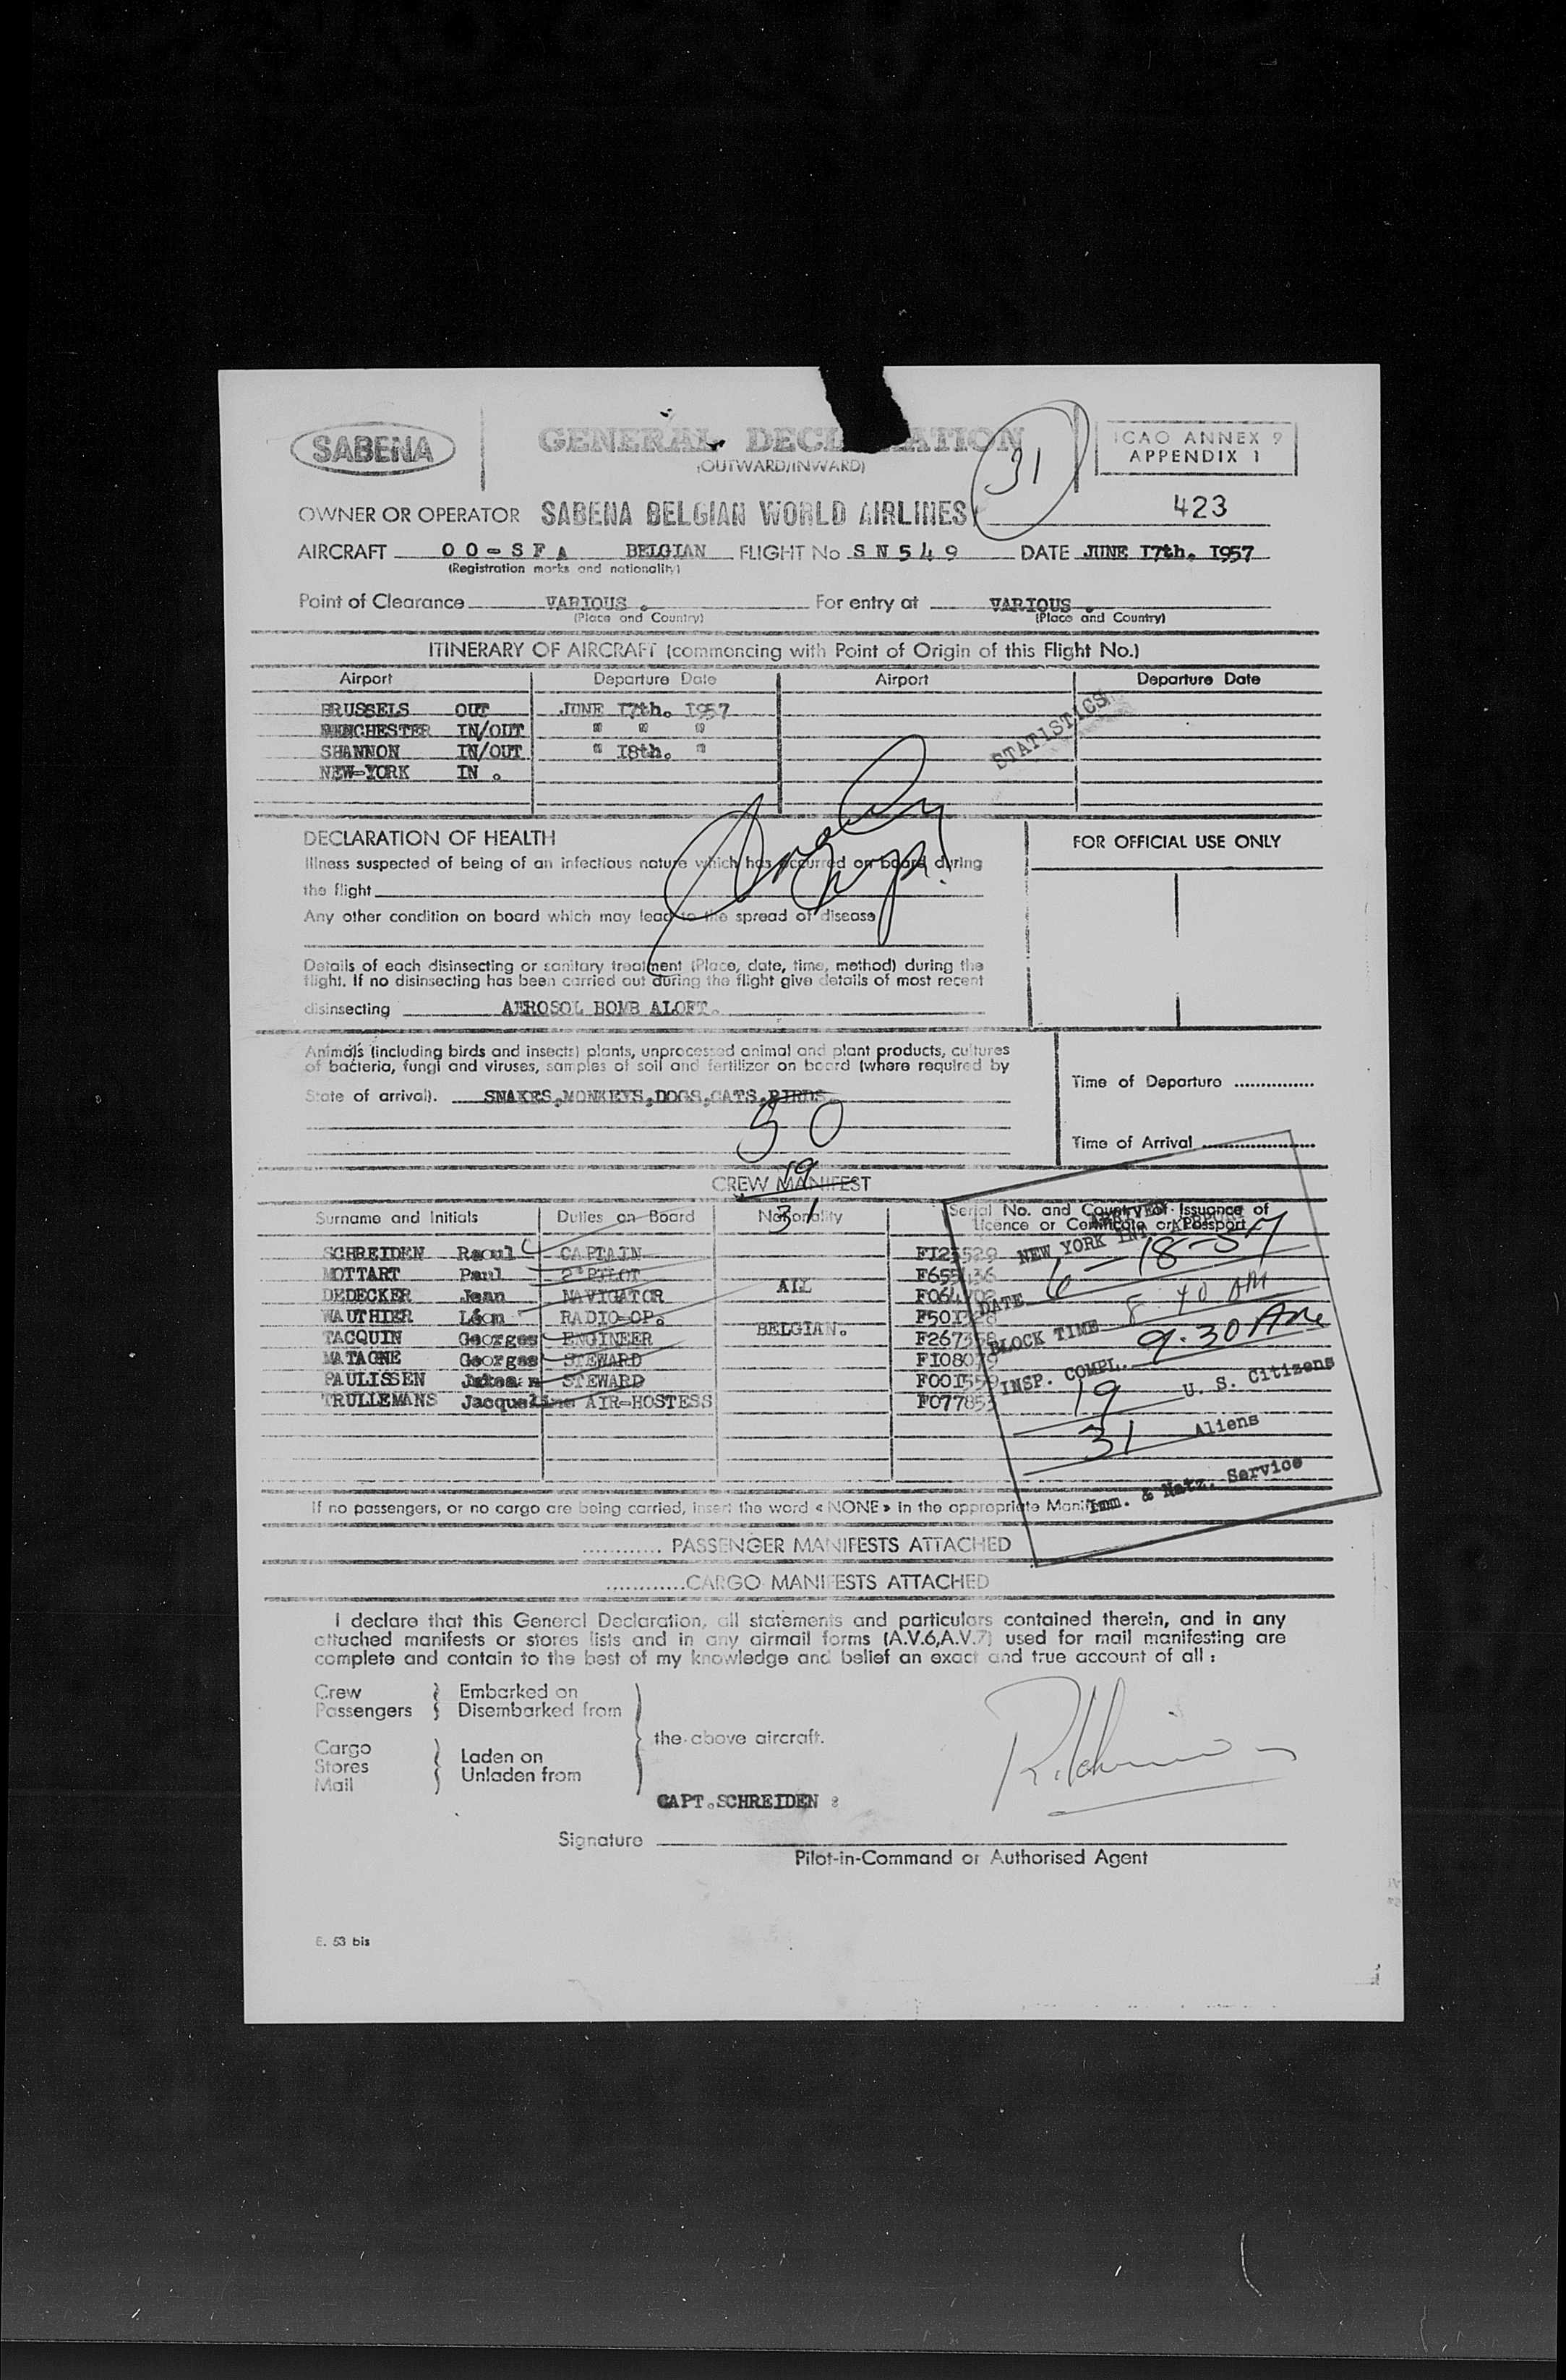 SABENA
GENERAL DECL ATION
(OUTWARD/INWARD)
31
ICAO ANNEX 9
APPENDIX 1
423
OWNER OR OPERATOR SABENA BELGIAN WORLD AIRLINES
AIRCRAFT OO-SFA BELGIAN FLIGHT No SN549 DATE JUNE I7th. I957
(Registration marks and nationality)
Point of Clearance VARIOUS. For entry at VARIOUS.
(Place and Country) (Place and Country)
ITINERARY OF AIRCRAFT (commencing with Point of Origin of this Flight No.)
Airport Departure Date Airport Departure Date
BRUSSELS OUT JUNE I7th. I957
MANCHESTER IN/OUT " " "
SHANNON IN/OUT " I8th. "
NEW-YORK IN.
STATISTICS
DECLARATION OF HEALTH
FOR OFFICIAL USE ONLY
Illness suspected of being of an infectious nature which has occurred on board during
the flight
Any other condition on board which may lead to the spread of disease
Details of each disinsecting or sanitary treatment (Place, date, time, method) during the
flight. If no disinsecting has been carried out during the flight give details of most recent
disinsecting AEROSOL BOMB ALOFT.
Animals (including birds and insects) plants, unprocessed animal and plant products, cultures
of bacteria, fungi and viruses, samples of soil and fertilizer on board (where required by
State of arrival). SNAKES,MONKEYS,DOGS,CATS,BIRDS.
Time of Departure ...............
Time of Arrival .....................
50
19
31
CREW MANIFEST
Surname and Initials Duties on Board Nationality Serial No. and Country of Issuance of
licence or Certificate or Passport
SCHREIDEN Raoul CAPTAIN FI25529
MOTTART Paul 2°PILOT F655436
DEDECKER Jean NAVIGATOR ALL
WAUTHIER Léon RADIO-OP.
TACQUIN Georges ENGINEER BELGIAN.
MATAGNE Georges STEWARD
PAULISSEN STEWARD F00I559
TRULLEMANS Jacqueline AIR-HOSTESS F077853
ARRIVED
NEW YORK INT. AIRPORT
DATE 6-18-57
BLOCK TIME 8 40 AM
INSP. COMPL. 9.30 AM
19 U. S. Citizens
31 Aliens
Imm. & Natz. Service
If no passengers, or no cargo are being carried, insert the word « NONE » in the appropriate Manif
............ PASSENGER MANIFESTS ATTACHED
............CARGO MANIFESTS ATTACHED
I declare that this General Declaration, all statements and particulars contained therein, and in any
attached manifests or stores lists and in any airmail forms (A.V.6,A.V.7) used for mail manifesting are
complete and contain to the best of my knowledge and belief an exact and true account of all :
Crew } Embarked on
Passengers } Disembarked from
the above aircraft.
Cargo
Stores } Laden on
Mail } Unladen from
CAPT.SCHREIDEN :
Signature
Pilot-in-Command or Authorised Agent
E. 53 bis